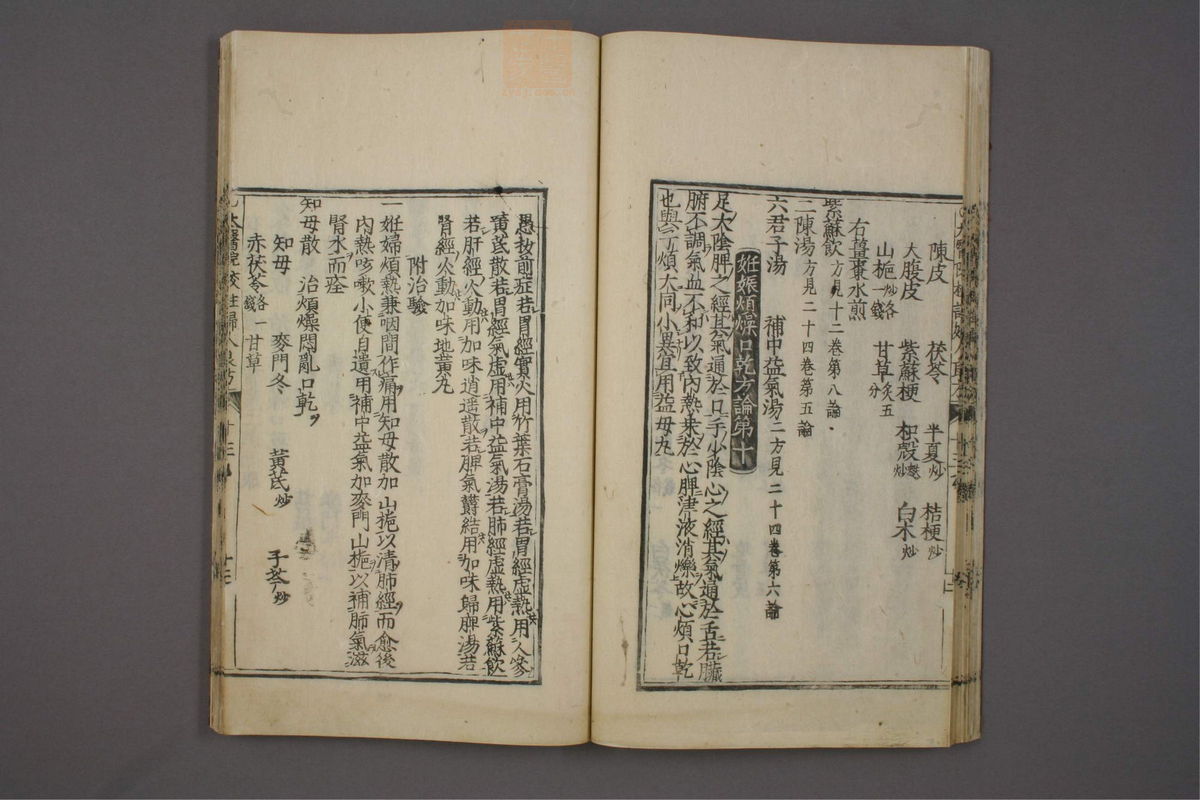 陳皮 茯苓 半夏炒 桔梗炒
大腹皮 紫蘇梗 枳殼麩炒 白朮炒
山梔炒各一錢 甘草炙五分
右薑棗水煎
紫蘇飲方見十二卷第八論
二陳湯方見二十四卷第五論
六君子湯 補中益氣湯二方見二十四卷第六論
姙娠煩燥口乾方論第十
足太陰脾之經其氣通於口手少陰心之經其氣通於舌若臟
腑不調氣血不和以致內熱乗於心脾津液消爍故心煩口乾
也與子煩大同小異宜用益母丸
愚按前症若胃經實火用竹葉石膏湯若胃經虛熱用人參
黃芪散若胃經氣虛用補中益氣湯若肺經虛熱用紫蘇飲
若肝經火動用加味逍遥散若脾氣欝結用加味歸脾湯若
腎經火動加味地黃丸
附治驗
一姙婦煩熱兼咽間作痛用知母散加山梔以清肺經而愈後
內熱咳嗽小便自遺用補中益氣加麥門山梔以補肺氣滋
腎水而痊
知母散 治煩燥悶亂口乾
知母 麥門冬 黃芪炒 子芩炒
赤茯苓各一錢 甘草
太醫院校註婦人良方 十三